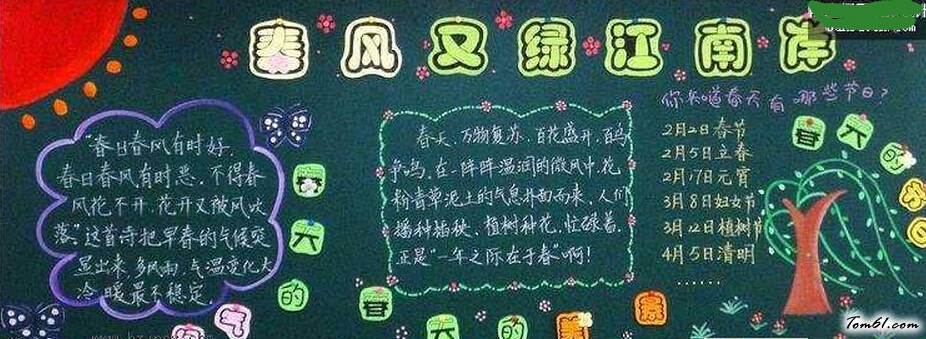 春风又绿江南岸
"春日春风有时好，
春日春风有时恶，不得春
风花不开，花开又被风吹
落"这首诗把早春的气候突
显出来，多风雨，气温变化大
冷暖最不稳定。
春天的
气
春天，万物复苏，百花盛开，百鸟
争鸣，在一阵阵温润的微风中，花
粉青草泥土的气息扑面而来，人们
播种插秧，植树种花，忙碌着，
正是"一年之际在于春"啊！
春天的美景
你知道春天有哪些节日？
2月2日春节
2月5日立春
2月17日元宵
3月8日妇女节
3月12日植树节
4月5日清明
……
春天的节日
Tom61.com